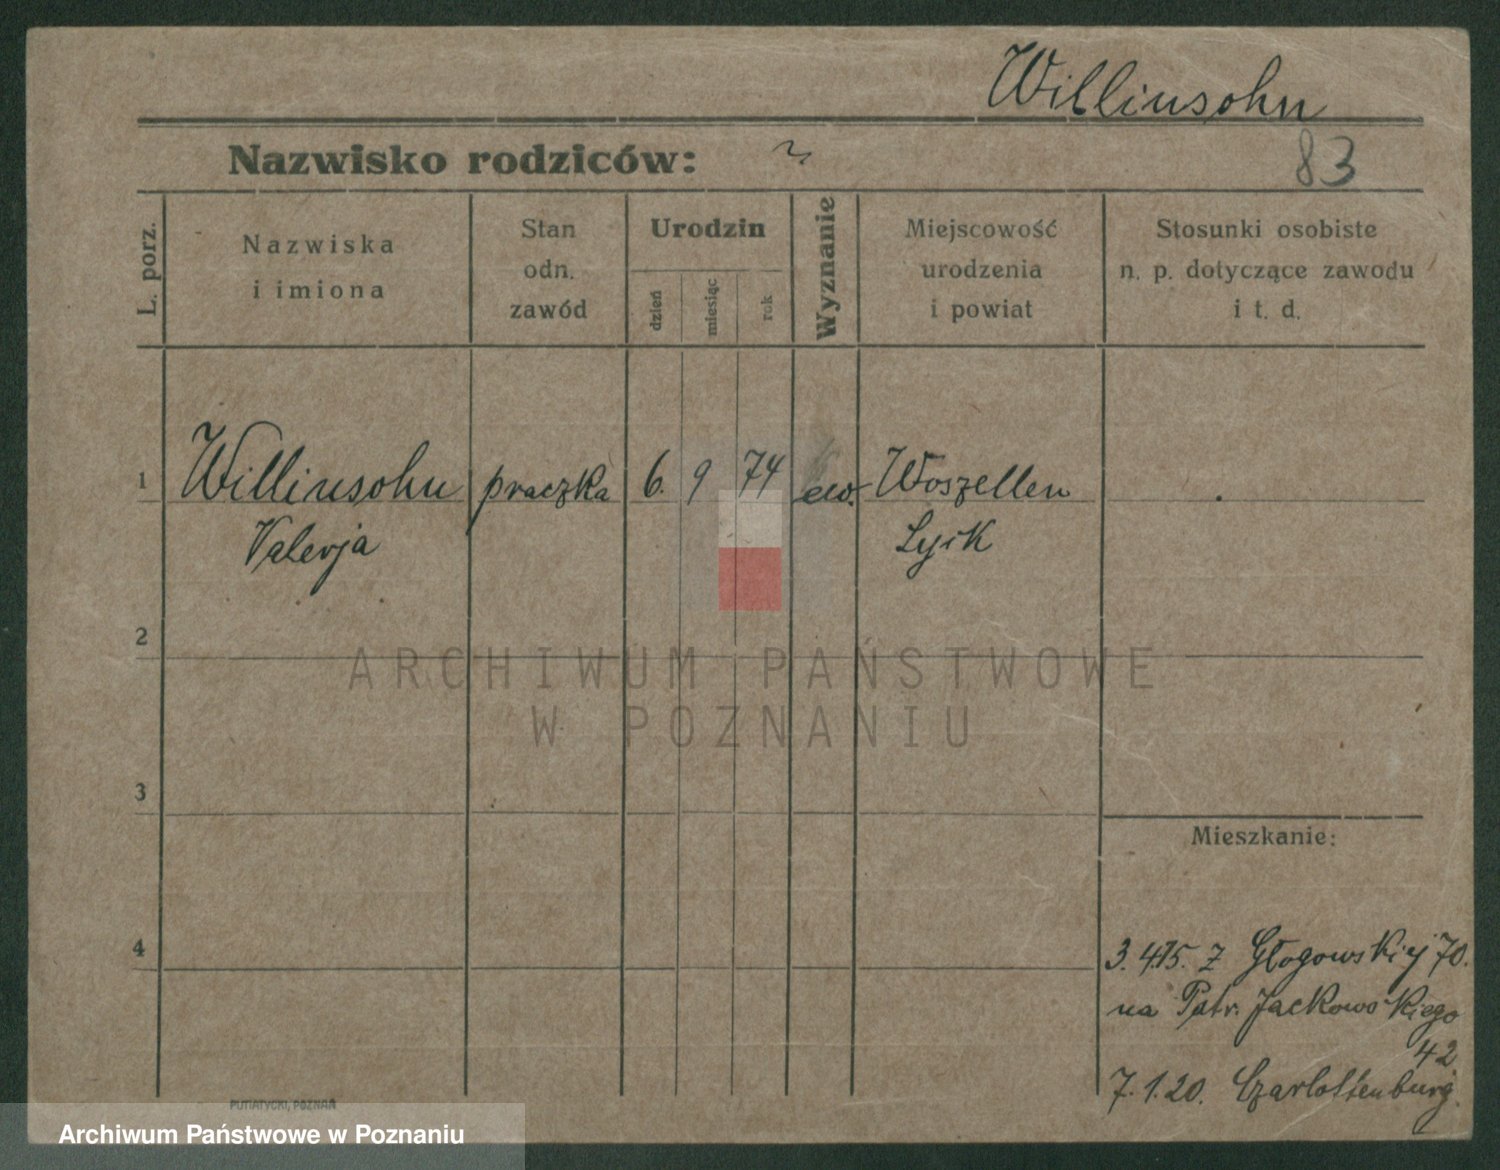 Williusohn
Nazwisko rodziców:
83
L. porz.
Nazwiska
i imiona
Stan
odn.
zawód
Urodzin
dzień
miesiąc
rok
Wyznanie
Miejscowość
urodzenia
i powiat
Stosunki osobiste
n. p. dotyczące zawodu
i t. d.
1 Williusohn praczka 6. 9 74 ew. Woszellen
Valerja Lyck
2
3
Mieszkanie:
4
3. 4.15. z Głogowskiej 70.
na Patr. Jackowskiego
42
7.1.20. Czarlottenburg.
PUTIATYCKI, POZNAŃ
ARCHIWUM PAŃSTWOWE
W POZNANIU
Archiwum Państwowe w Poznaniu